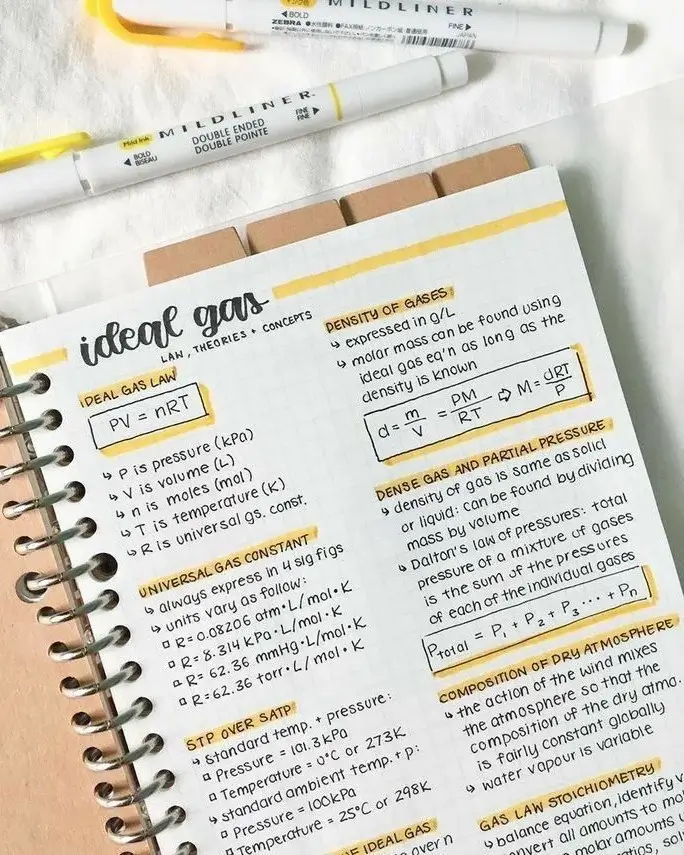 BOLD
MILDLINER
FINE
ZEBRA
JAPAN
Mild ink
MILDLINER.
DOUBLE ENDED
DOUBLE POINTE
BOLD
BISEAU
FINE
FINE
ideal gas
LAW, THEORIES + CONCEPTS
IDEAL GAS LAW
PV = nRT
↳ P is pressure (kPa)
↳ V is volume (L)
↳ n is moles (mol)
↳ T is temperature (K)
↳ R is universal gs. const.
UNIVERSAL GAS CONSTANT
↳ always express in 4 sig figs
↳ units vary as follow:
▫ R=0.08206 atm·L/mol·K
▫ R= 8.314 kPa·L/mol·K
▫ R= 62.36 mmHg·L/mol·K
▫ R=62.36 torr·L/mol·K
STP OVER SATP
↳ standard temp. + pressure:
▫ Pressure = 101.3 kPa
▫ Temperature = 0°C or 273K
↳ standard ambient temp. + p:
▫ Pressure = 100kPa
▫ Temperature = 25°C or 298K
OF IDEAL GAS
over n
DENSITY OF GASES:
↳ expressed in g/L
↳ molar mass can be found using
ideal gas eq'n as long as the
density is known
d = m/V = PM/RT ⇨ M = dRT/P
DENSE GAS AND PARTIAL PRESSURE
↳ density of gas is same as solid
or liquid: can be found by dividing
mass by volume
↳ Dalton's law of pressures: total
pressure of a mixture of gases
is the sum of the pressures
of each of the individual gases
Ptotal = P₁ + P₂ + P₃ ... + Pn
COMPOSITION OF DRY ATMOSPHERE
↳ the action of the wind mixes
the atmosphere so that the
composition of the dry atma.
is fairly constant globally
↳ water vapour is variable
GAS LAW STOICHIOMETRY
↳ balance equation, identify
all amounts to
molar amounts